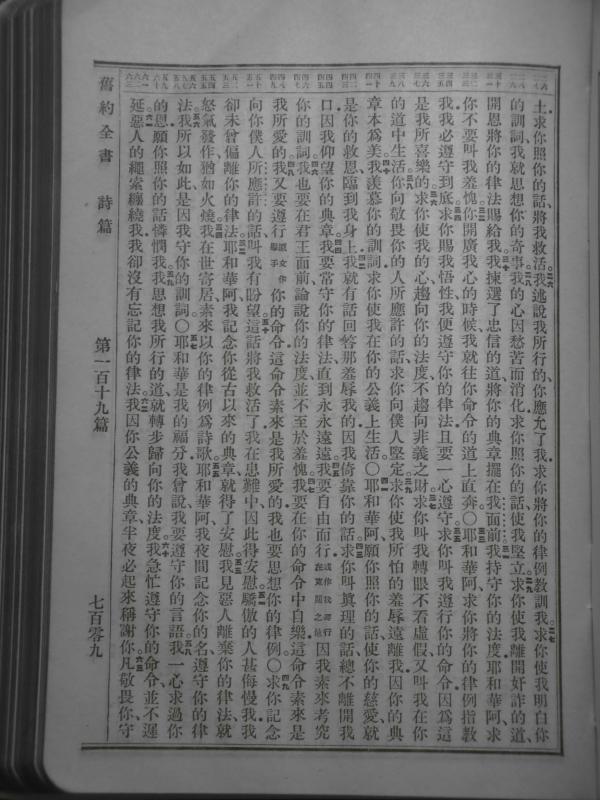 土求你照你的話將我救活我述說我所行的你應允了我求你將你的律例教訓我求你使我明白你
的訓詞我就思想你的奇事我的心因愁苦而消化求你照你的話使我堅立求你使我離開奸詐的道
開恩將你的律法賜給我我揀選了忠信的道將你的典章擺在我面前我持守你的法度耶和華阿求
你不要叫我羞愧你開廣我心的時候我就往你命令的道上直奔○耶和華阿求你將你的律例指教
我我必遵守到底求你賜我悟性我便遵守你的律法且要一心遵守求你叫我遵行你的命令因爲這
是我所喜樂的求你使我的心趨向你的法度不趨向非義之財求你叫我轉眼不看虛假又叫我在你
的道中生活你向敬畏你的人所應許的話求你向僕人堅定求你使我所怕的羞辱遠離我因你的典
章本爲美我羨慕你的訓詞求你使我在你的公義上生活○耶和華阿願你照你的話使你的慈愛就
是你的救恩臨到我身上我就有話回答那羞辱我的因我倚靠你的話求你叫眞理的話總不離開我
口因我仰望你的典章我要常守你的律法直到永永遠遠我要自由而行或作我要行在寬闊之地因我素來考究
你的訓詞我也要在君王面前論說你的法度並不至於羞愧我要在你的命令中自樂這命令素來是
我所愛的我又要遵行原文作舉手你的命令這命令素來是我所愛的我也要思想你的律例○求你記念
向你僕人所應許的話叫我有盼望這話將我救活了我在患難中因此得安慰驕傲的人甚侮慢我我
卻未曾偏離你的律法耶和華阿我記念你從古以來的典章就得了安慰我見惡人離棄你的律法就
怒氣發作猶如火燒我在世寄居素來以你的律例爲詩歌耶和華阿我夜間記念你的名遵守你的律
法我所以如此是因我守你的訓詞○耶和華是我的福分我曾說我要遵守你的言語我一心求過你
的恩願你照你的話憐憫我我思想我所行的道就轉步歸向你的法度我急忙遵守你的命令並不遲
延惡人的繩索纏繞我我卻沒有忘記你的律法我因你公義的典章半夜必起來稱謝你凡敬畏你守
舊約全書 詩篇 第一百十九篇 七百零九